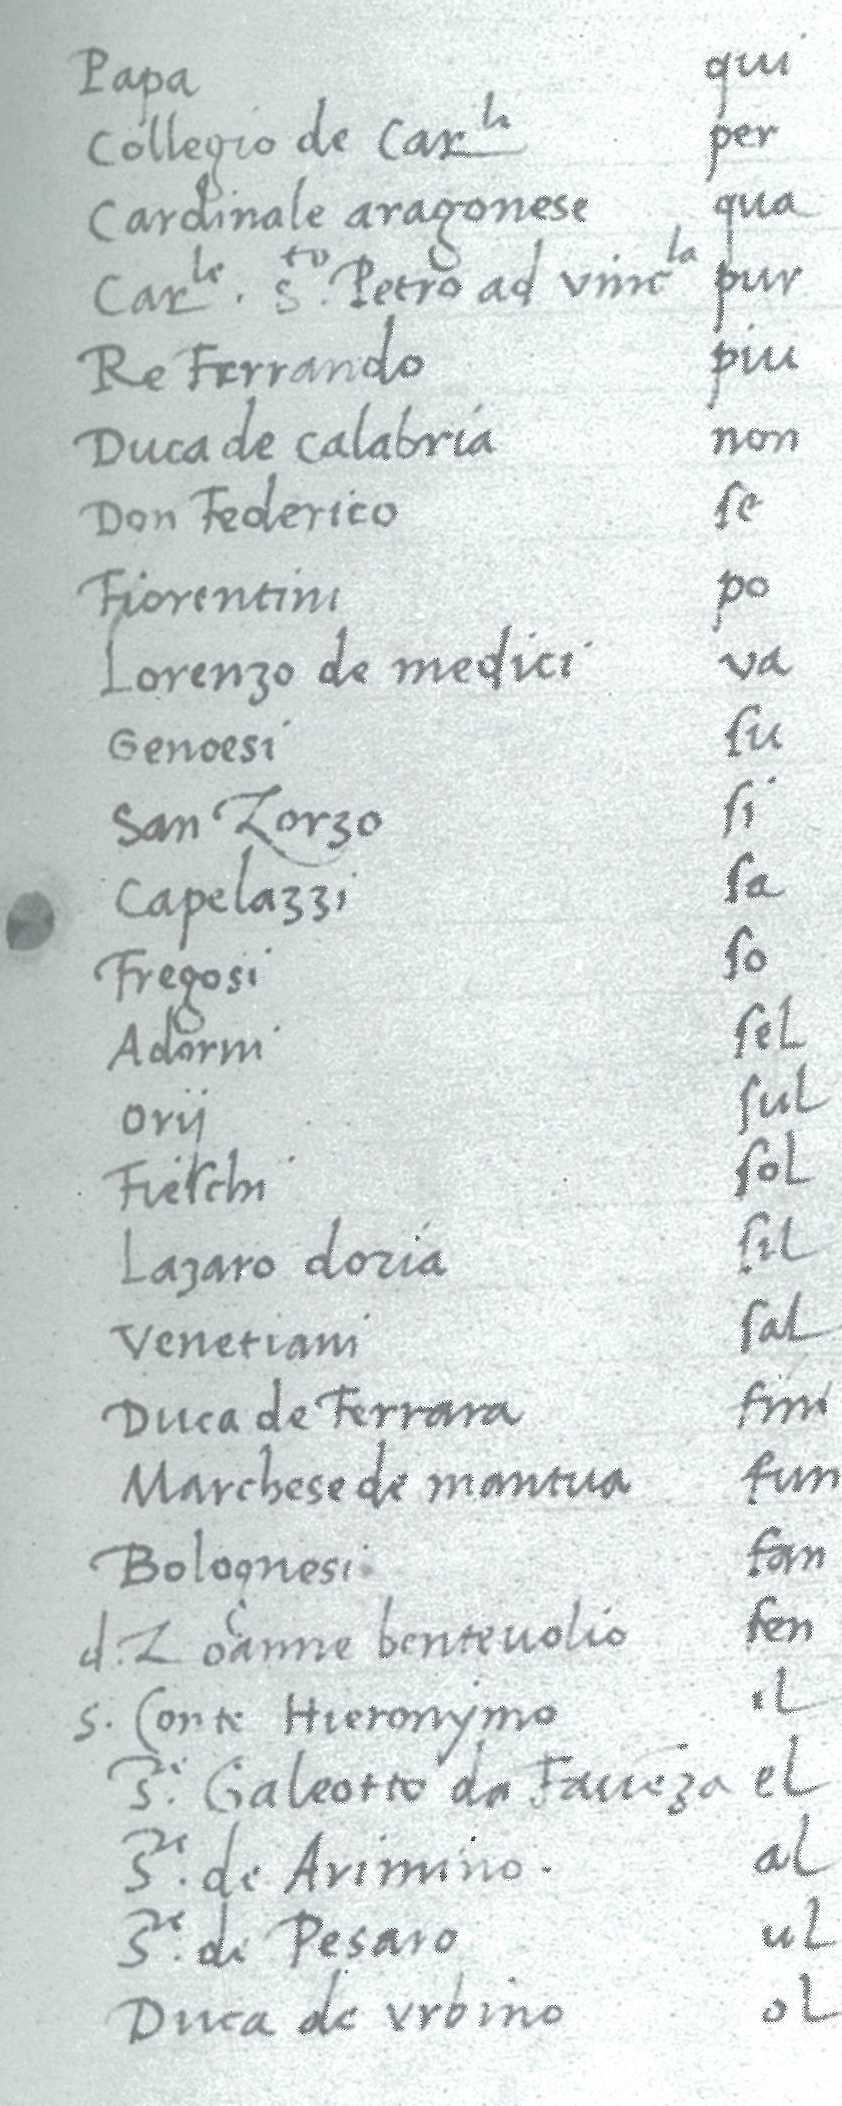 Papa qui
Collegio de Car.li per
Cardinale aragonese qua
Car.le. S.to Petro ad vinc.la pur
Re Ferrando piu
Duca de calabria non
Don Federico se
Fiorentini po
Lorenzo de medici va
Genoesi su
San Zorzo si
Capelazzi sa
Fregosi so
Adorni sel
Orij sul
Fieschi sol
Lazaro doria sil
Venetiani sal
Duca de Ferrara fini
Marchese de mantua fun
Bolognesi fan
d. Zoanne bentevolio fen
S. Conte Hieronymo il
S.r Galeotto da Faenza el
S.re de Arimino. al
S.re de Pesaro ul
Duca de Urbino ol